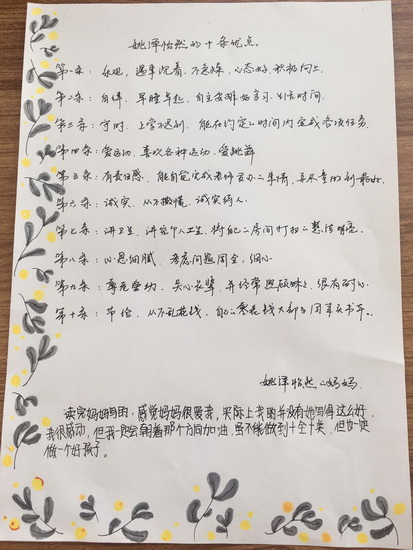 姚泽怡然的十条优点
第一条：乐观，遇事沉着、不急躁，心态好，积极向上。
第二条：自律，早睡早起，自主安排好学习、生活时间。
第三条：守时，上学不迟到，能在约定的时间内完成各项任务。
第四条：爱运动，喜欢各种运动，爱跳舞
第五条：有责任感，能自觉完成老师交办的事情，并尽量的到最好。
第六条：诚实，从不撒谎，诚实待人。
第七条：讲卫生，讲究个人卫生，将自己的房间打扫的整洁明亮。
第八条：心思细腻，考虑问题周全，细心
第九条：尊老爱幼，关心长辈，并经常照顾妹妹，很有耐心。
第十条：节俭，从不乱花钱，自己的零花钱大部分用来买书等。
姚泽怡然的妈妈
读完妈妈写的，感觉妈妈很爱我，实际上我的并没有她写得这么好，
我很感动，但我一定会朝着那个方向加油，虽不能做到十全十美，但也一定
做一个好孩子。